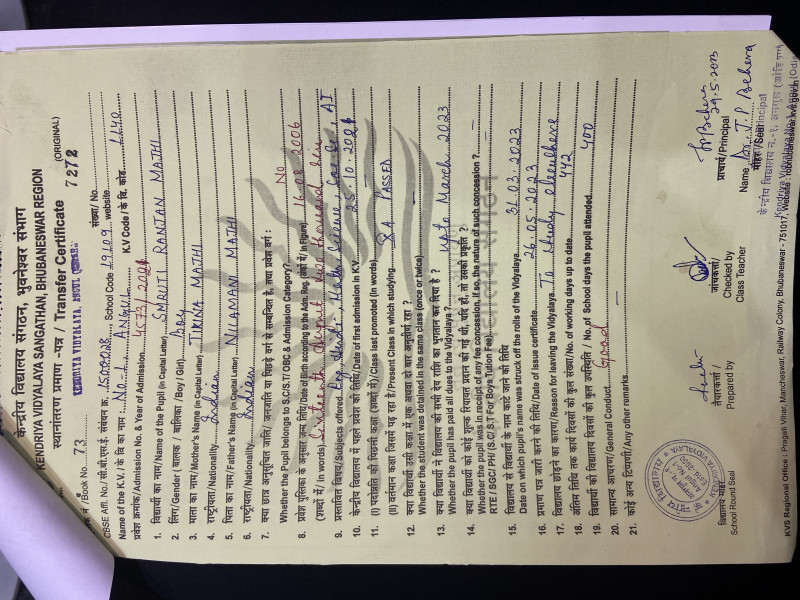 केन्द्रीय विद्यालय संगठन, भुवनेश्वर संभाग
KENDRIYA VIDYALAYA SANGATHAN, BHUBANESWAR REGION
स्थानांतरण प्रमाण -पत्र / Transfer Certificate (ORIGINAL)
/Book No. 73 KENDRIYA VIDYALAYA, ANGUL 7272
संख्या/ No.
CBSE Affl. No./सी.बी.एस.ई. संबंधन क्र. School Code 19109 website
Name of the K.V. /के वि का नाम : No-1, ANGUL K.V Code / के वि. कोड. 1140
प्रवेश क्रमांक/Admission No. & Year of Admission.
1. विद्यार्थी का नाम/Name of the Pupil (in Capital Letter) SMRUTI RANJAN MAJHI
2. लिंग/Gender (बालक / बालिका /Boy / Girl) boy
3. माता का नाम/Mother's Name (in Capital Letter) TIKINA MAJHI
4. राष्ट्रीयता/Nationality Indian
5. पिता का नाम/Father's Name (in Capital Letter) NILAMANI MAJHI
6. राष्ट्रीयता/Nationality Indian
7. क्या छात्र अनुसूचित जाति/ जनजाति या पिछड़े वर्ग से सम्बन्धित है, तथा प्रवेश वर्ग :
Whether the Pupil belongs to S.C/S.T/ OBC & Admission Category? No
8. प्रवेश पुस्तिका के अनुसार जन्म तिथि/Date of Birth according to the Adm. Reg. (अंकों में/ in Figure) 16-08-2006
(शब्दों में/ in words) Sixteenth August two thousand six
9. प्रस्तावित विषय/Subjects offered Eng, Hindi, Maths, Science, AI
10. केन्द्रीय विद्यालय में पहला प्रवेश की तिथि/Date of first admission in K.V. 25.10.2021
11. (I) पदोन्नति की पिछली कक्षा (शब्दों में)/Class last promoted (in words)
(II) वर्तमान कक्षा जिसमें पढ़ रहा है/Present Class in which studying PASSED
12. क्या विद्यार्थी उसी कक्षा में एक अथवा दो बार अनुतीर्ण रहा ?
Whether the student was detained in the same class (once or twice)
13. क्या विद्यार्थी ने विद्यालय की सभी देय राशि का भुगतान कर दिया है ?
Whether the pupil has paid all dues to the Vidyalaya ? upto March 2023
14. क्या विद्यार्थी को कोई शुल्क रियायत प्रदान की गई थी, यदि हाँ, तो उसकी प्रकृति ?
Whether the pupil was in receipt of any fee concession, if so, the nature of such concession ?
RTE / SGC/ PH/ (S.C/ S.T For Boys Tution Fee)
15. विद्यालय से विद्यार्थी के नाम काटे जाने की तिथि
Date on which pupil's name was struck off the rolls of the Vidyalaya 31.03.2023
16. प्रमाण पत्र जारी करने की तिथि/Date of issue certificate 26.05.2023
17. विद्यालय छोड़ने का कारण/Reason for leaving the Vidyalaya To study elsewhere
18. अंतिम तिथि तक कार्य दिवसों की कुल संख्या/No. of working days up to date 412
19. विद्यार्थी की विद्यालय दिवसों की कुल उपस्थिति / No. of School days the pupil attended 400
20. सामान्य आचरण/General Conduct Good
21. कोई अन्य टिप्पणी/Any other remarks
विद्यालय मोहर
School Round Seal
तैयारकर्ता/
Prepared by
जांचकर्ता/
Checked by
Class Teacher
29.5.2023
प्राचार्य/Principal
Name Dr. J. P. Behera
मोहर/ Seal
KVS Regional Office : Pragati Vihar, Mancheswar, Railway Colony, Bhubaneswar - 751017, Website :